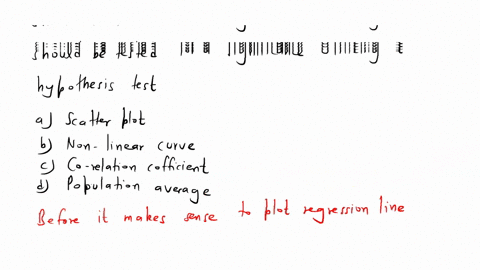 should be tested
hypothesis test
a) Scatter plot
b) Non-linear curve
c) Co-relation cofficient
d) Population average
Before it makes sense to plot regression line